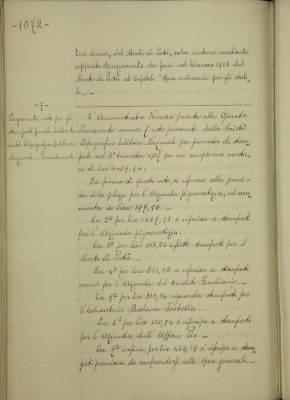 -1072-
teri diversi, del Monte di Pietà, salvo rimborso mediante
apposito stanziamento dei fondi nel bilancio 1908 del
Monte di Pietà al Capitolo "Spese ordinarie per gli stabi-
li". —
-7-
Pagamento note per gli
stampati forniti dalla So-
cietà Tipografica Editrice
Nazionale. — Provvedimenti.
L'Amministratore presenta alla Giunta
numero 7 note pervenute dalla Società
Tipografica Editrice Nazionale per provvista di stam-
pati nel 2° bimestre 1907 per un complessivo montare
di lire
La prima di queste note si riferisce alla provvi-
sta delle polizze per l'Azienda pignoratizia, ed am-
monta a lire 197,50. —
La 2ª per lire si riferisce a stampati
per l'Azienda pignoratizia.
La 3ª per lire riflette stampati per il
Monte di Pietà. —
La 4ª per lire si riferisce a stampati
occorsi per l'Azienda del Credito Fondiario. —
La 5ª per lire riguarda stampati per
l'Educatorio Duchessa Isabella. —
La 6ª per lire si riferisce a stampati
per l'Azienda dell'Ufficio Pio. —
La 7ª infine per lire si riferisce a stam-
pati provvisti da comprendersi nelle spese generali. —